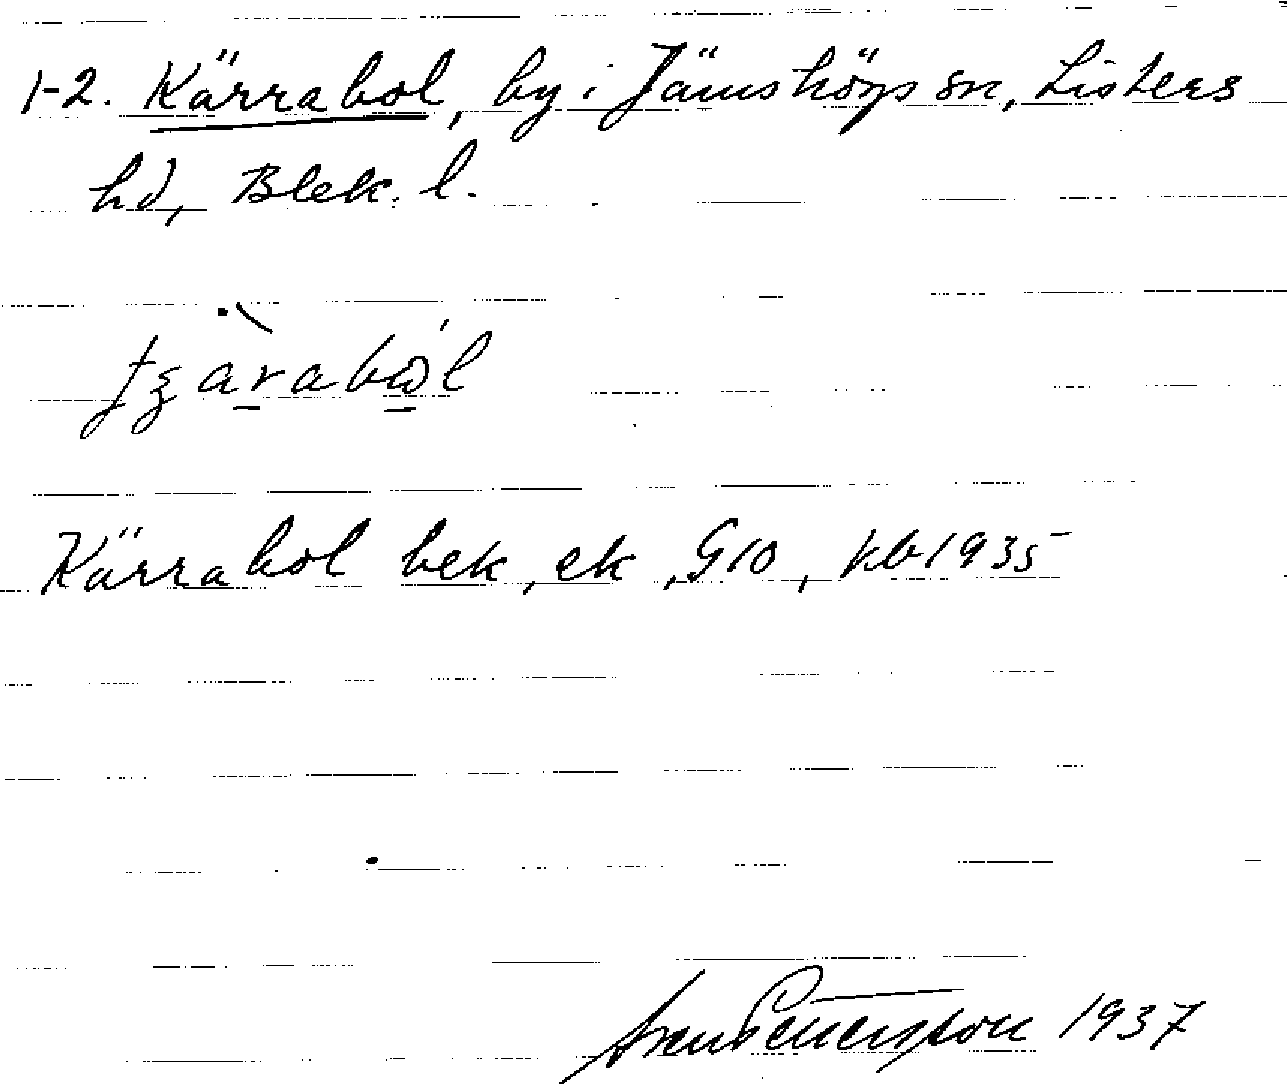 1-2. Kärrabol, by i Jämshögs sn, Listers
hd, Blek. l.
Kärrabol bek, ek, G10, kb 1935
Sven Pettersson 1937